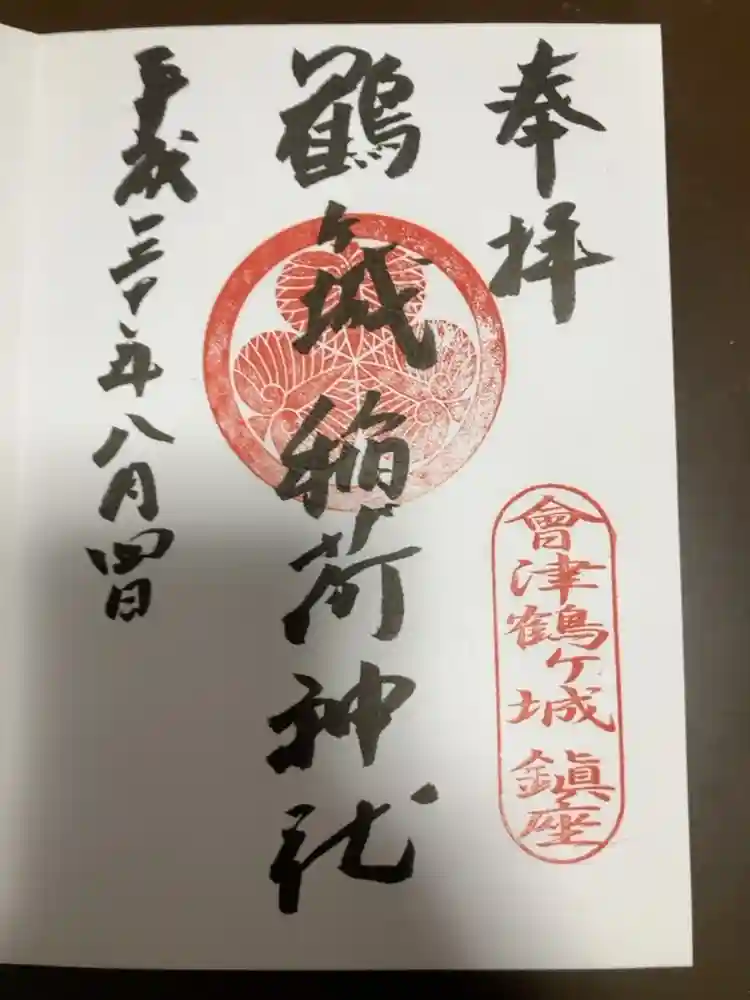 奉拝
會津鶴ヶ城 鎮座
鶴ヶ城稲荷神社
平成三十年八月四日